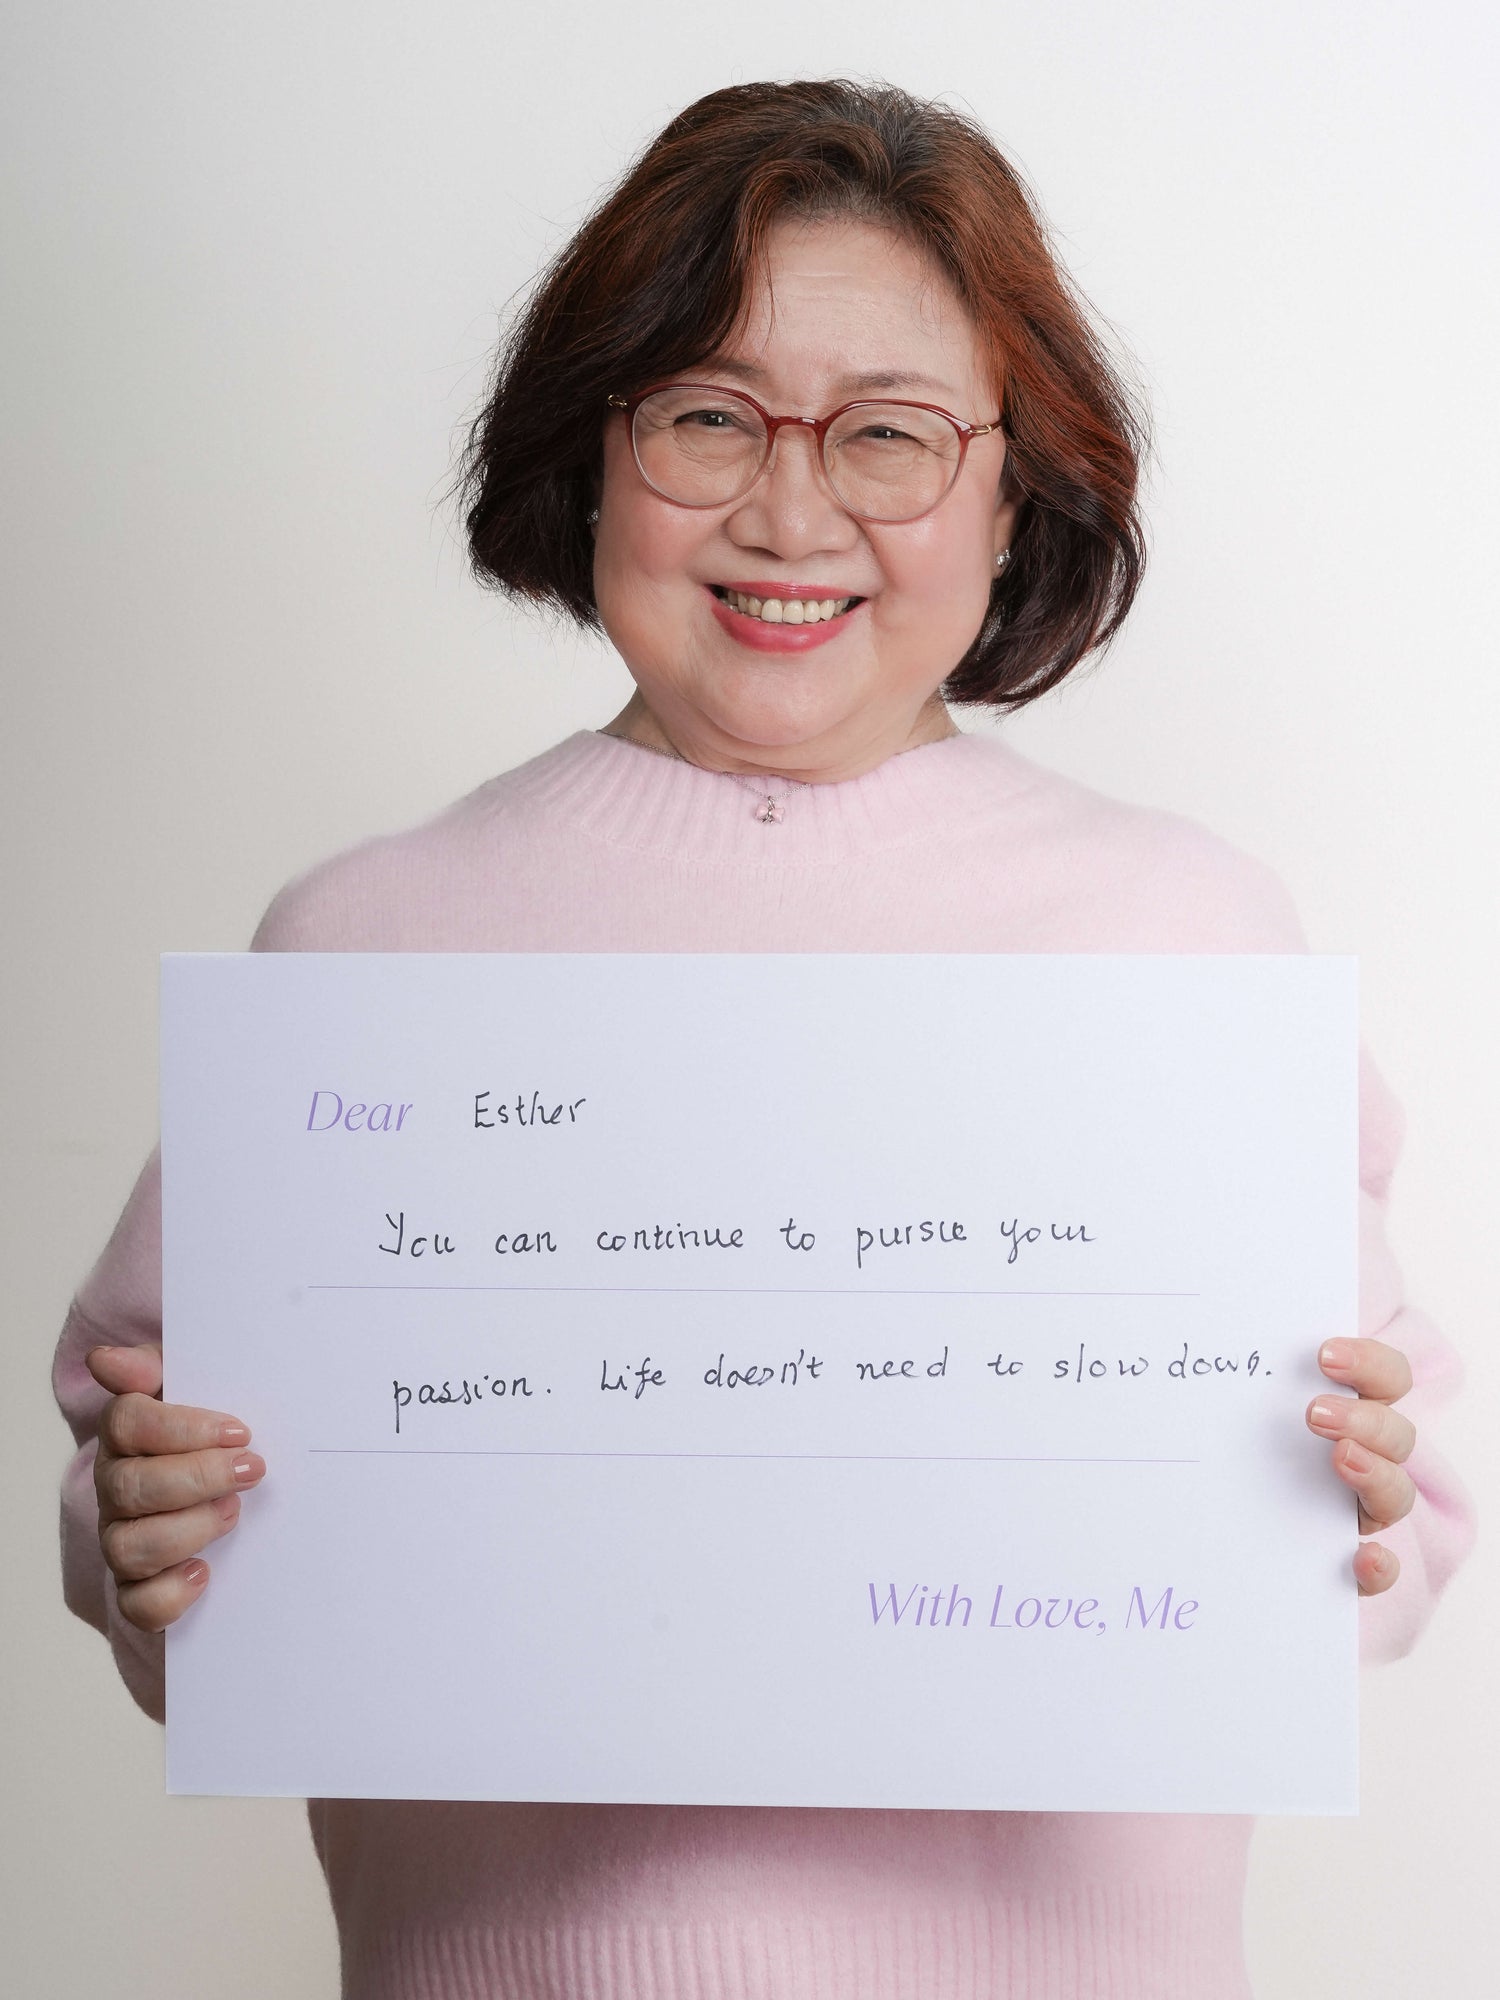 Dear Esther
You can continue to pursue your
passion. Life doesn't need to slow down.
With Love, Me